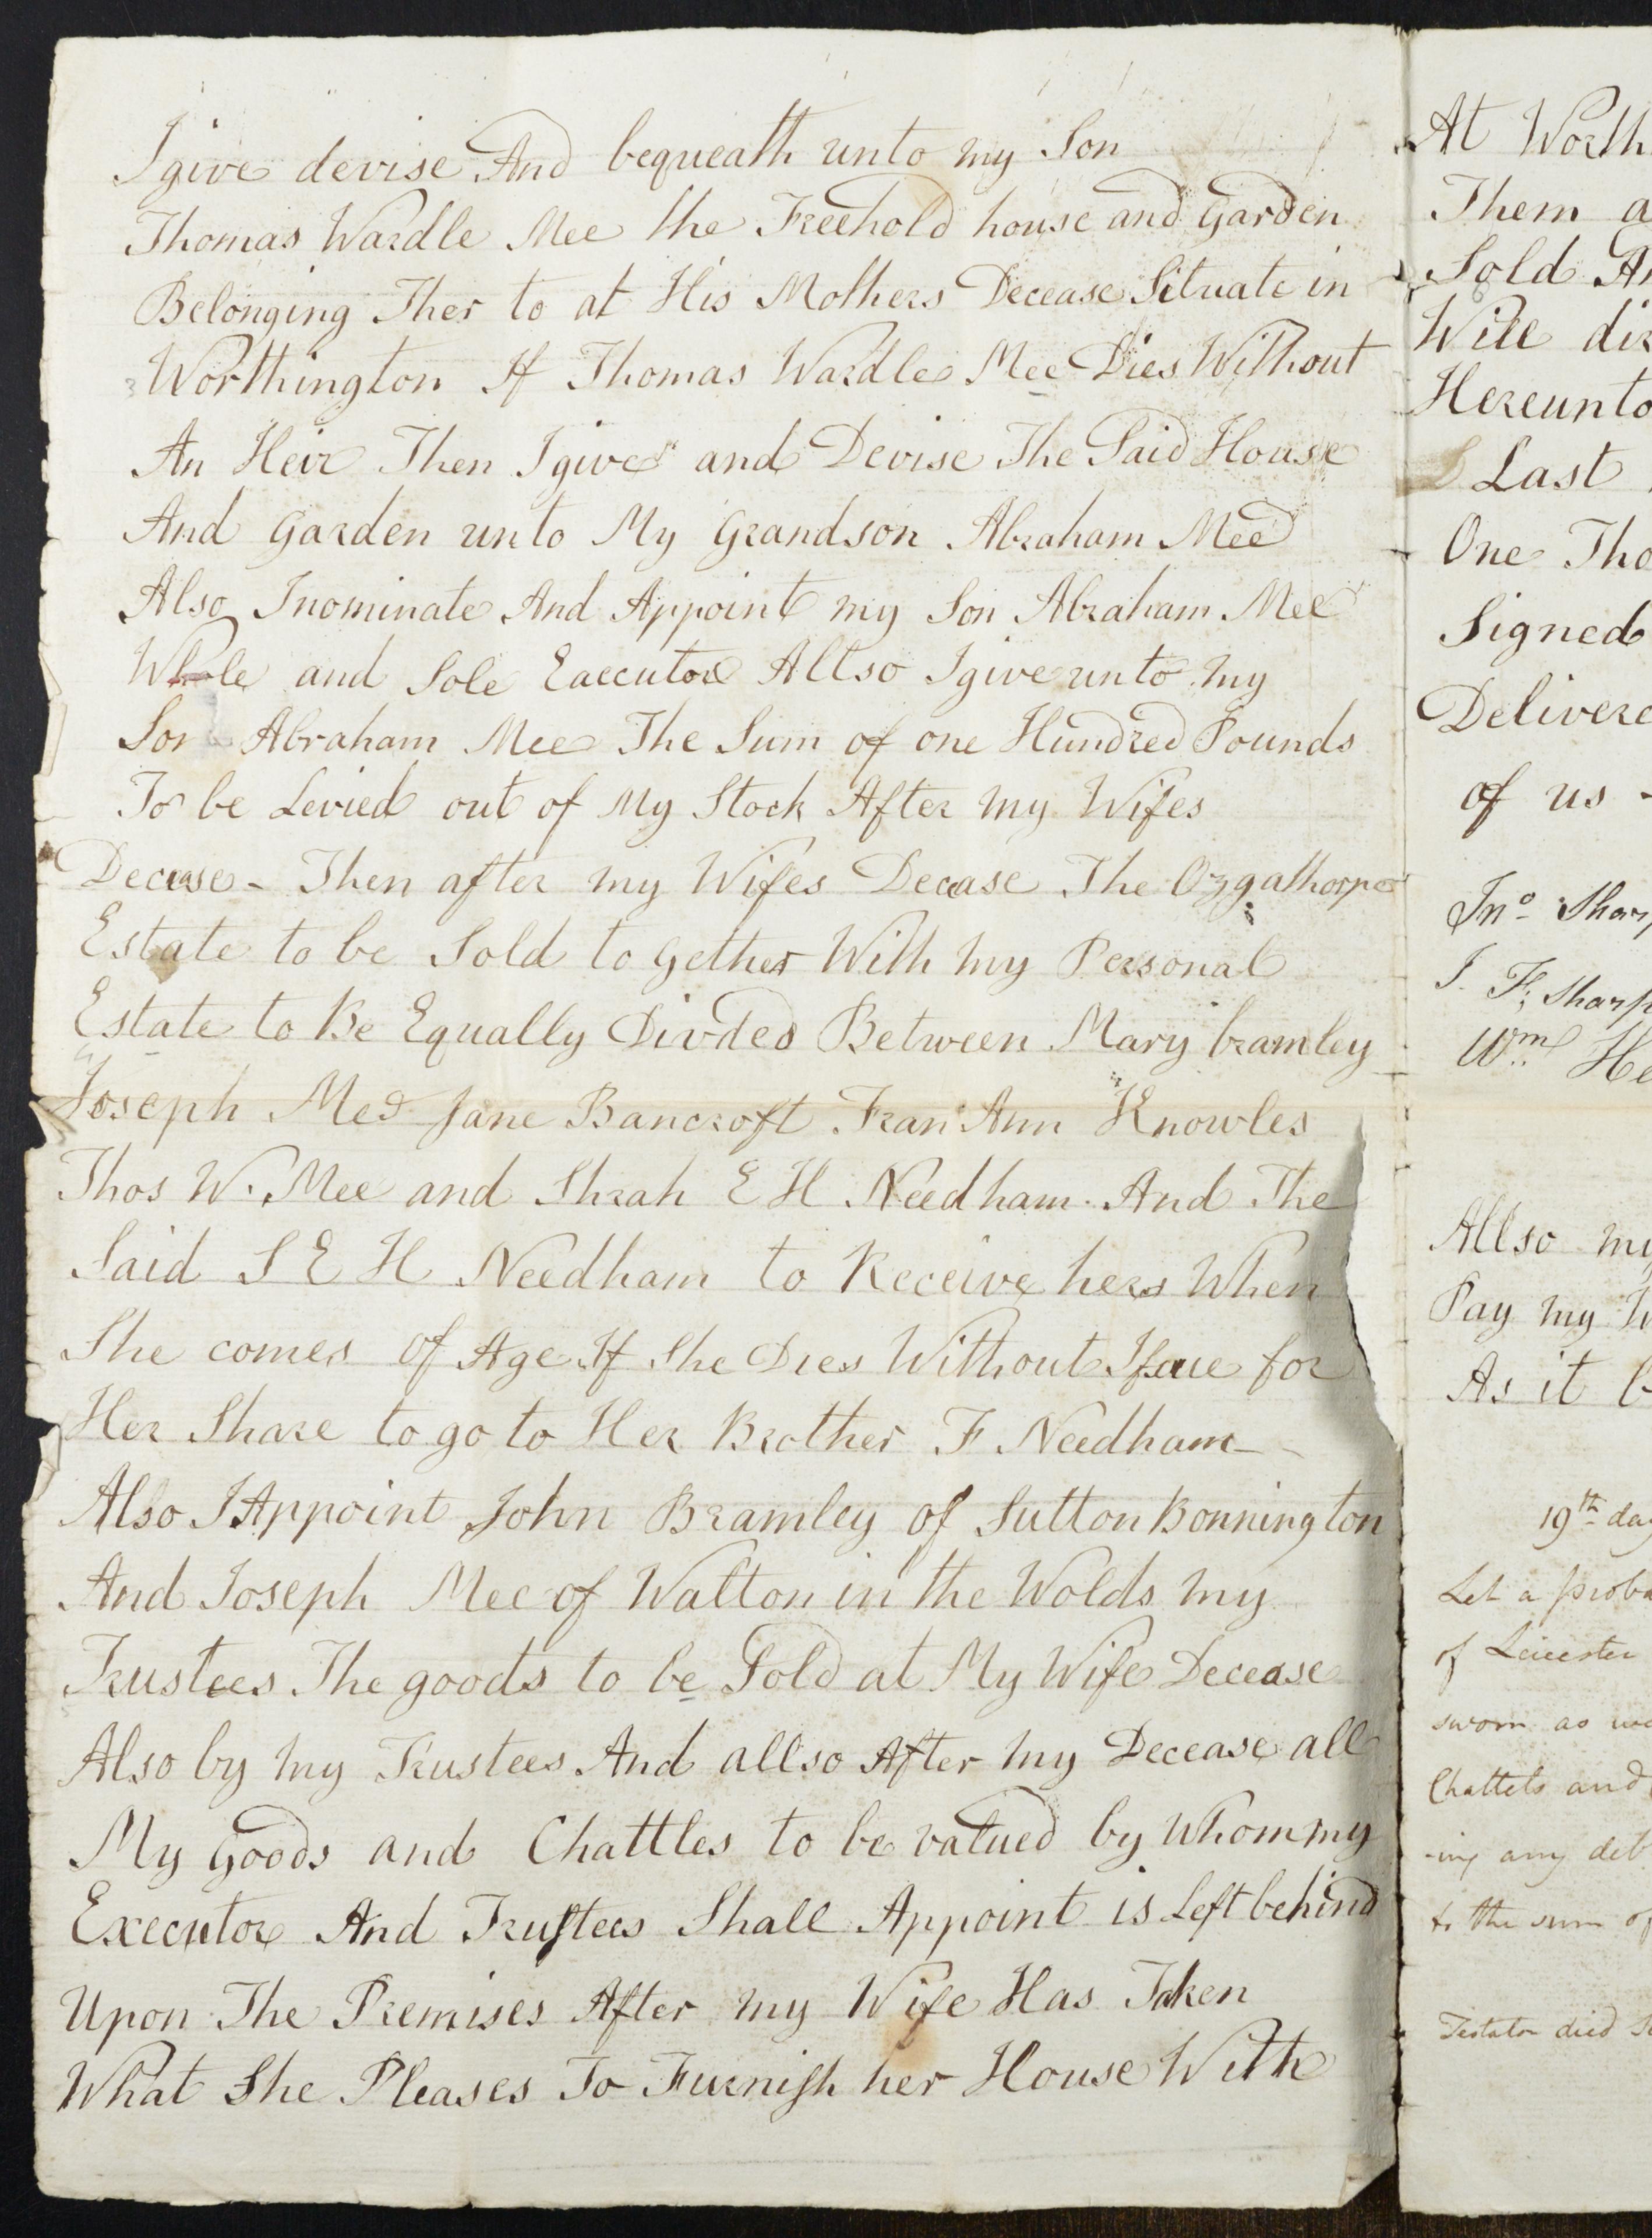 I give devise And bequeath unto my Son
Thomas Wardle Mee the Freehold house and Garden
Belonging Ther to at His Mothers Decease Situate in
Worthington If Thomas Wardle Mee Dies Without
An Heir Then I give and Devise The Said House
And Garden unto My Grandson Abraham Mee
Also I nominate And Appoint my Son Abraham Mee
Whole and Sole Executor Allso I give unto my
Son Abraham Mee The Sum of one Hundred Pounds
To be Levied out of My Stock After my Wifes
Decease - Then after my Wifes Decase The Ozgathorpe
Estate to be Sold to Gether With my Personal
Estate to Be Equally Divded Between Mary bramley
Joseph Mee Jane Bancroft Fran Ann Knowles
Thos W. Mee and Shrah E H Needham. And The
Said S E H Needham to Receive hers When
She comes of Age If She Dies Without Issue for
Her Share to go to Her Brother F Needham
Also I Appoint John Bramley of Sutton Bonnington
And Joseph Mee of Walton in the Wolds my
Trustees The goods to be Sold at My Wife Decease
Also by my Trustees And allso After my Decease all
My Goods and Chattles to be valued by Whom my
Executor And Trustees Shall Appoint is Left behind
Upon The Premises After my Wife Has Taken
What She Pleases To Furnish her House With
At Worth
Them a
Sold An
Will dir
Hereunto
Last
One Tho
Signed
Delivere
of us -
Jno Sharp
J. F. Sharp
Wm He
Allso my
Pay my
As it b
19th day
Let a proba
of Leicester
sworn as
Chattels and
-ing any deb
to the sum of
Testator died